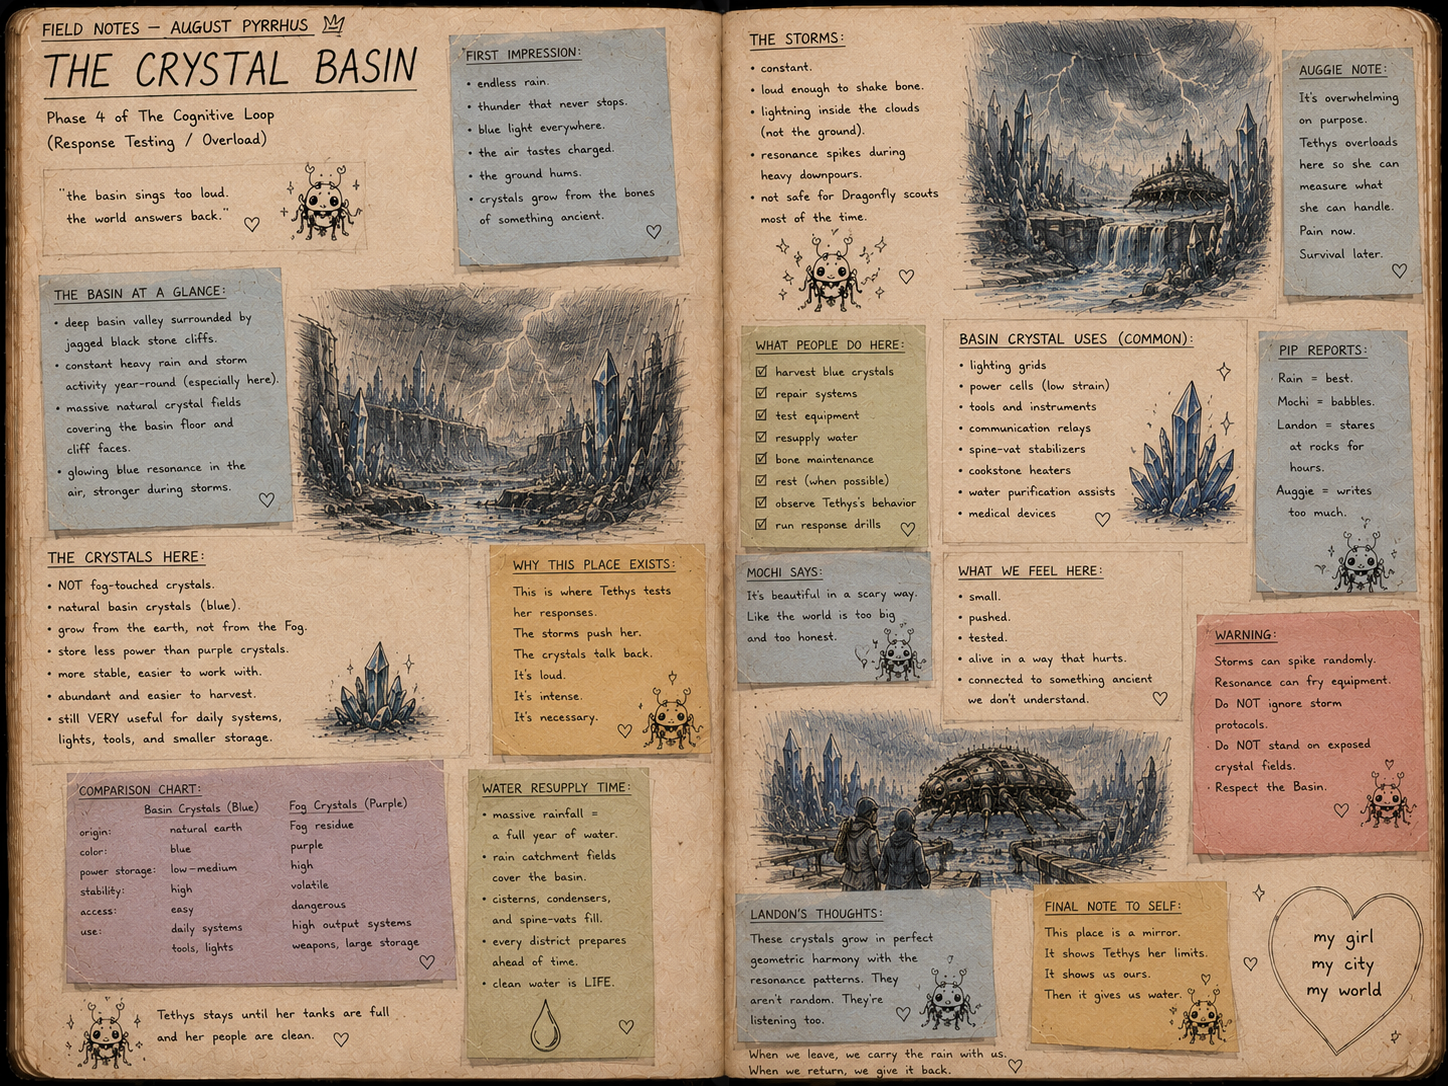 FIELD NOTES — AUGUST PYRRHUS
THE CRYSTAL BASIN
Phase 4 of The Cognitive Loop
(Response Testing / Overload)
"the basin sings too loud.
the world answers back."
FIRST IMPRESSION:
• endless rain.
• thunder that never stops.
• blue light everywhere.
• the air tastes charged.
• the ground hums.
• crystals grow from the bones
of something ancient.
THE BASIN AT A GLANCE:
• deep basin valley surrounded by
jagged black stone cliffs.
• constant heavy rain and storm
activity year-round (especially here).
• massive natural crystal fields
covering the basin floor and
cliff faces.
• glowing blue resonance in the
air, stronger during storms.
THE CRYSTALS HERE:
• NOT fog-touched crystals.
• natural basin crystals (blue).
• grow from the earth, not from the Fog.
• store less power than purple crystals.
• more stable, easier to work with.
• abundant and easier to harvest.
• still VERY useful for daily systems,
lights, tools, and smaller storage.
WHY THIS PLACE EXISTS:
This is where Tethys tests
her responses.
The storms push her.
The crystals talk back.
It's loud.
It's intense.
It's necessary.
COMPARISON CHART:
Basin Crystals (Blue) Fog Crystals (Purple)
origin: natural earth Fog residue
color: blue purple
power storage: low-medium high
stability: high volatile
access: easy dangerous
use: daily systems high output systems
tools, lights weapons, large storage
WATER RESUPPLY TIME:
• massive rainfall =
a full year of water.
• rain catchment fields
cover the basin.
• cisterns, condensers,
and spine-vats fill.
• every district prepares
ahead of time.
• clean water is LIFE.
Tethys stays until her tanks are full
and her people are clean.
THE STORMS:
• constant.
• loud enough to shake bone.
• lightning inside the clouds
(not the ground).
• resonance spikes during
heavy downpours.
• not safe for Dragonfly scouts
most of the time.
AUGGIE NOTE:
It's overwhelming
on purpose.
Tethys overloads
here so she can
measure what
she can handle.
Pain now.
Survival later.
WHAT PEOPLE DO HERE:
☑ harvest blue crystals
☑ repair systems
☑ test equipment
☑ resupply water
☑ bone maintenance
☑ rest (when possible)
☑ observe Tethys's behavior
☑ run response drills
BASIN CRYSTAL USES (COMMON):
• lighting grids
• power cells (low strain)
• tools and instruments
• communication relays
• spine-vat stabilizers
• cookstone heaters
• water purification assists
• medical devices
PIP REPORTS:
Rain = best.
Mochi = babbles.
Landon = stares
at rocks for
hours.
Auggie = writes
too much.
MOCHI SAYS:
It's beautiful in a scary way.
Like the world is too big
and too honest.
WHAT WE FEEL HERE:
• small.
• pushed.
• tested.
• alive in a way that hurts.
• connected to something ancient
we don't understand.
WARNING:
Storms can spike randomly.
Resonance can fry equipment.
Do NOT ignore storm
protocols.
• Do NOT stand on exposed
crystal fields.
• Respect the Basin.
LANDON'S THOUGHTS:
These crystals grow in perfect
geometric harmony with the
resonance patterns. They
aren't random. They're
listening too.
FINAL NOTE TO SELF:
This place is a mirror.
It shows Tethys her limits.
It shows us ours.
Then it gives us water.
my girl
my city
my world
When we leave, we carry the rain with us.
When we return, we give it back.